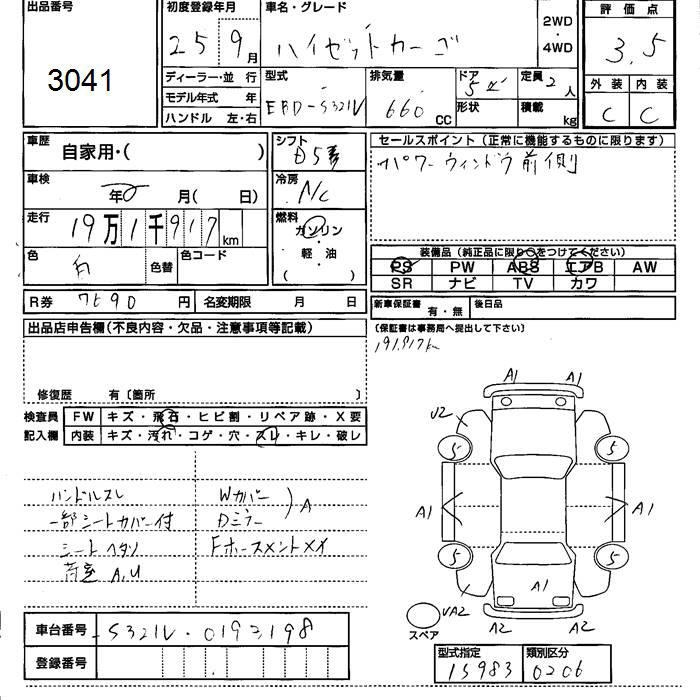 出品番号
3041
初度登録年月
25 9月
車名・グレード
ハイゼットカーゴ
2WD
・
4WD
評価点
3.5
外装 内装
C C
ディーラー・並 行
モデル年式 年
ハンドル 左・右
型式
EBD-S321V
排気量
660 cc
ドア
5ド
形状
定員
2人
積載
kg
車歴
自家用・( )
車検
年 月( 日)
走行
19万1千917km
色
白
色替
色コード
シフト
冷房
A/C
燃料
ガソリン
・
軽・油
( )
セールスポイント(正常に機能するものに限ります)
パワーウィンドウ前側
装備品(純正品に限り○をつけてください)
PS PW ABS エアB AW
SR ナビ TV カワ
R券 7690円
名変期限 月 日
新車保証書 有・無
後日品
(保証書は事務局へ提出して下さい)
191,917k
出品店申告欄(不良内容・欠品・注意事項等記載)
修復歴 有〔箇所 〕
検査員
記入欄
FW キズ・飛石・ヒビ割・リペア跡・X要
内装 キズ・汚れ・コゲ・穴・スレ・キレ・破レ
ハンドルスレ
一部シートカバー付
シートヘタリ
荷室 A,U
Wカバー
Dミラー
A
A1 A1
U2
5 5
A1 A1
5 5
A1
A2 A2
スペア
車台番号 S321V-0193198
登録番号
型式指定 類別区分
15983 0206